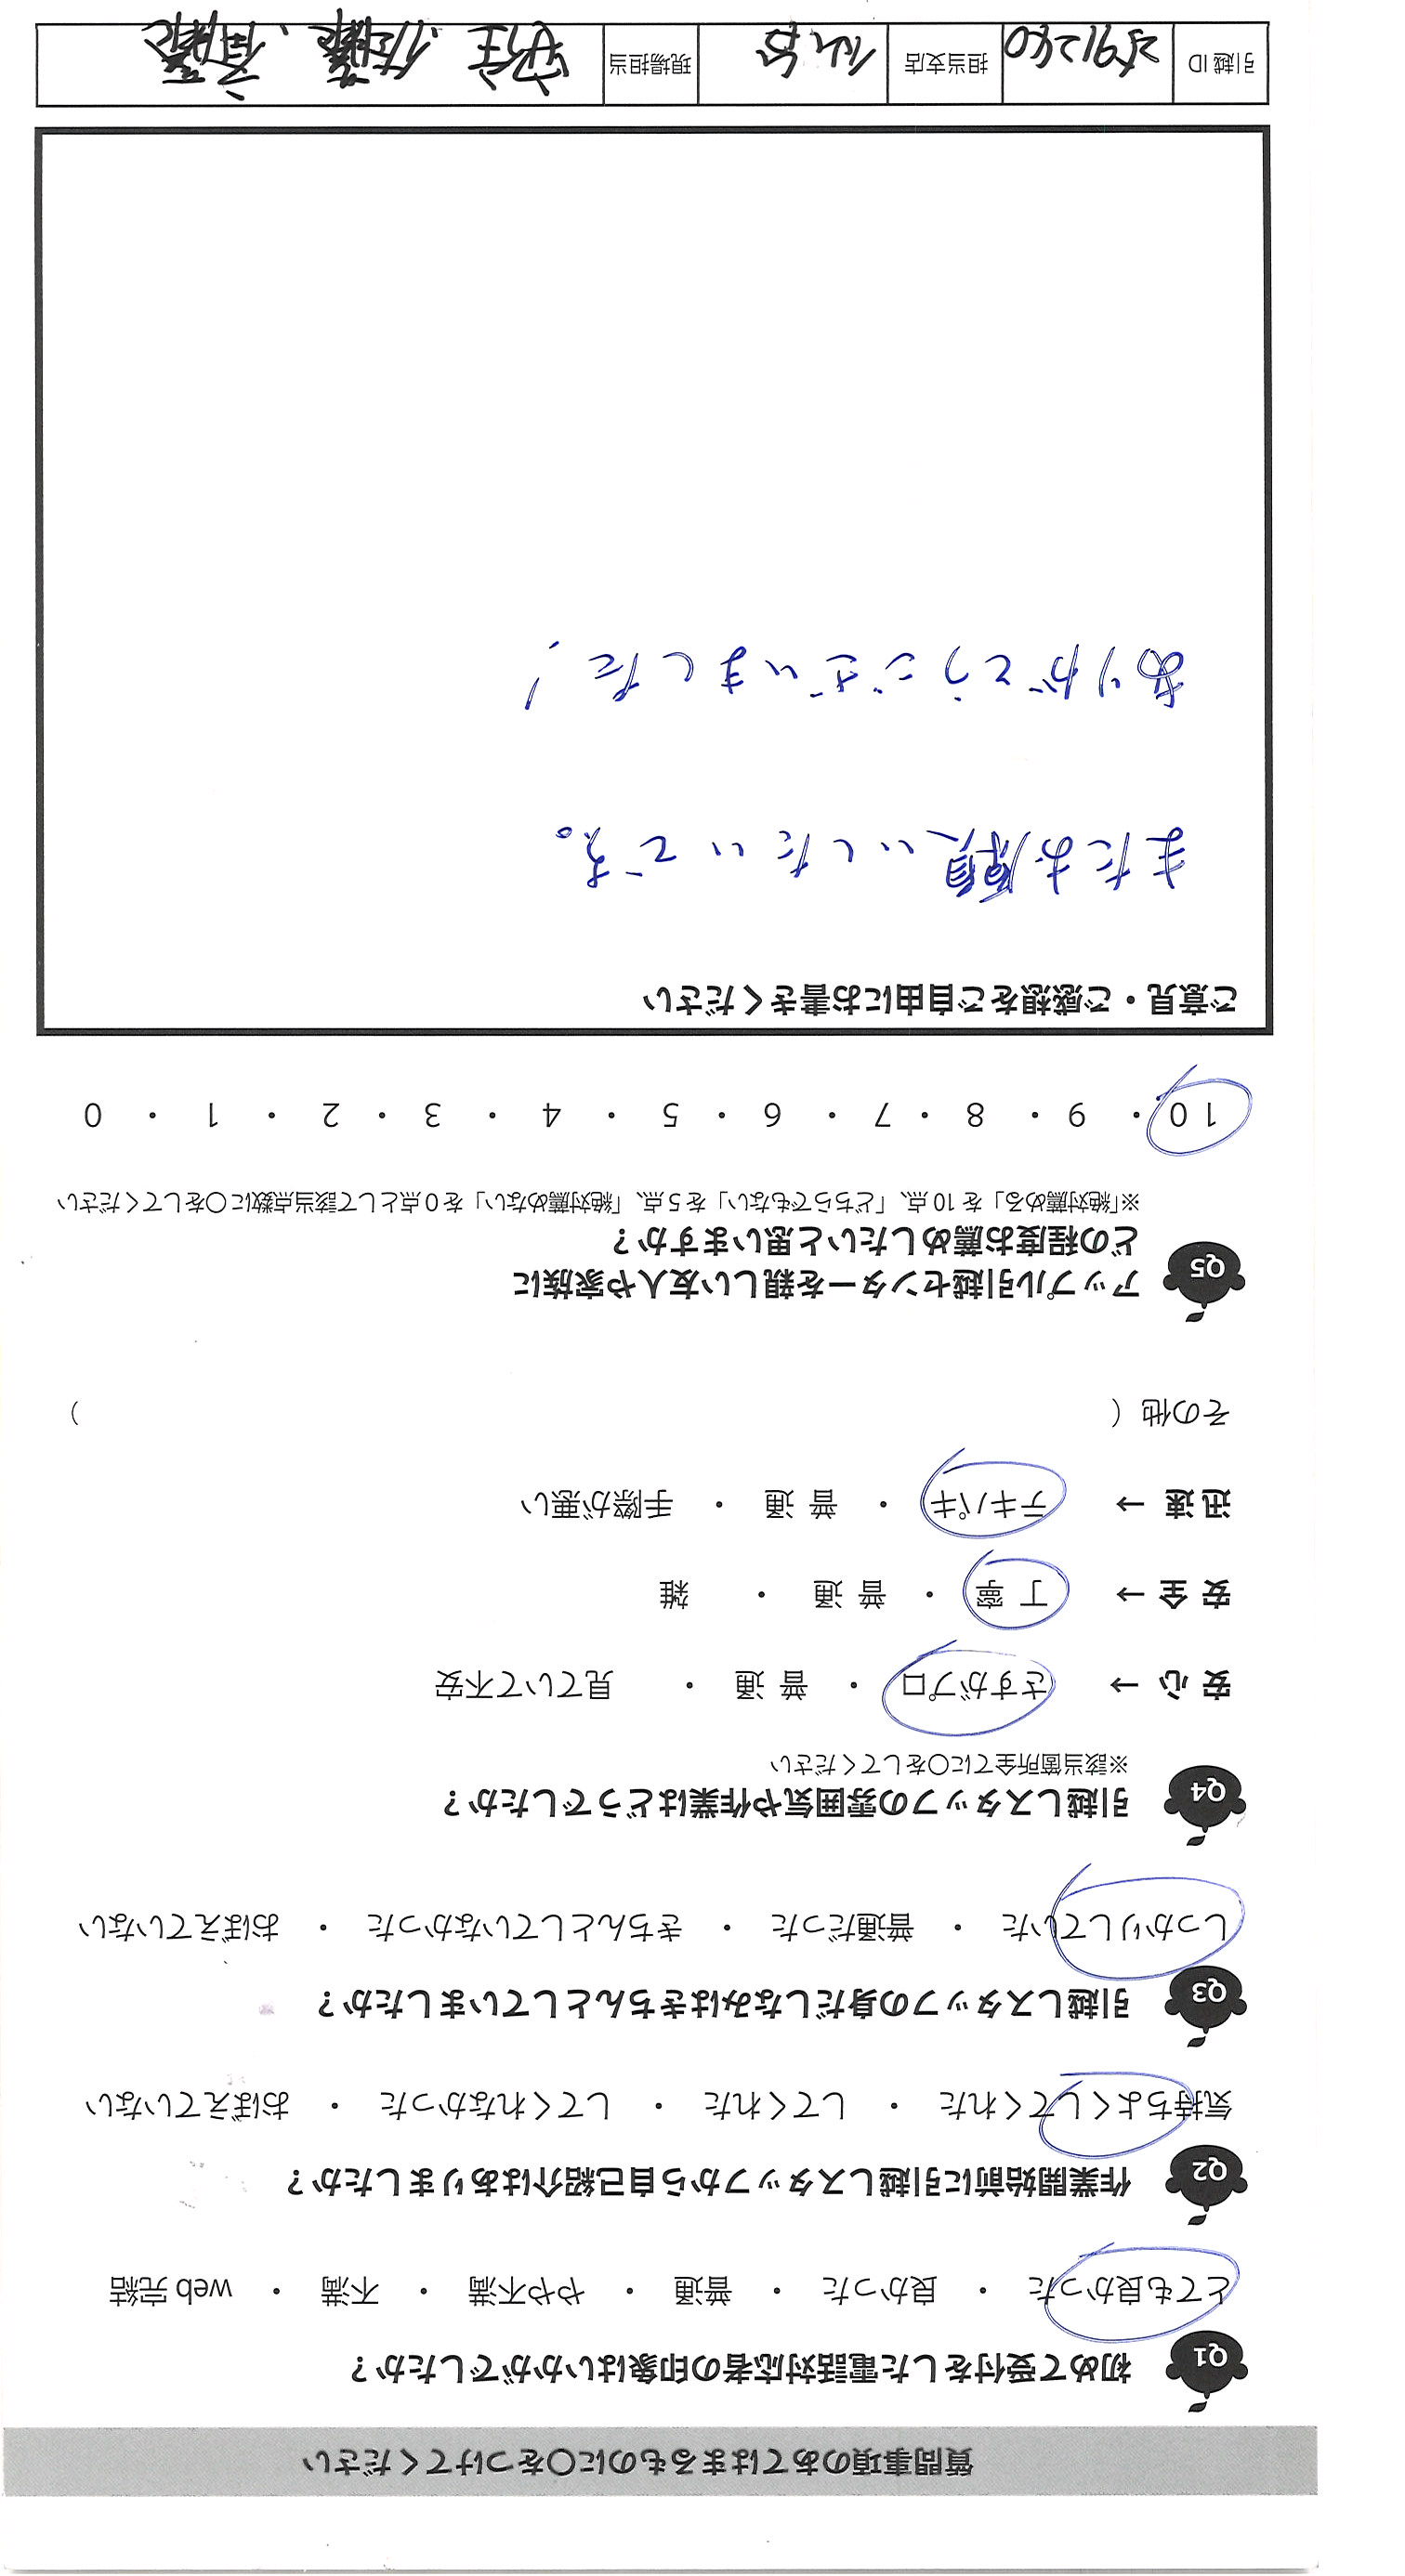 質問事項のあてはまるものに〇をつけてください
Q1 初めて受付をした電話対応者の印象はいかがでしたか？
とても良かった ・ 良かった ・ 普通 ・ やや不満 ・ 不満 ・ web 完結
Q2 作業開始前に引越しスタッフから自己紹介はありましたか？
気持ちよくしてくれた ・ してくれた ・ してくれなかった ・ おぼえていない
Q3 引越しスタッフの身だしなみはきちんとしていましたか？
しっかりしていた ・ 普通だった ・ きちんとしていなかった ・ おぼえていない
Q4 引越しスタッフの雰囲気や作業はどうでしたか？
※該当箇所全てに〇をしてください
安 心 → さすがプロ ・ 普 通 ・ 見ていて不安
安 全 → 丁 寧 ・ 普 通 ・ 雑
迅 速 → テキパキ ・ 普 通 ・ 手際が悪い
その他（ ）
Q5 アップル引越センターを親しい友人や家族に
どの程度お薦めしたいと思いますか？
※「絶対薦める」を 10 点、「どちらでもない」を 5 点、「絶対薦めない」を 0 点として該当点数に〇をしてください
10 ・ 9 ・ 8 ・ 7 ・ 6 ・ 5 ・ 4 ・ 3 ・ 2 ・ 1 ・ 0
ご意見・ご感想をご自由にお書きください
またお願いしたいです。
ありがとうございました！
引越 ID 2591240 担当支店 仙台 現場担当 安住、佐藤、斎藤